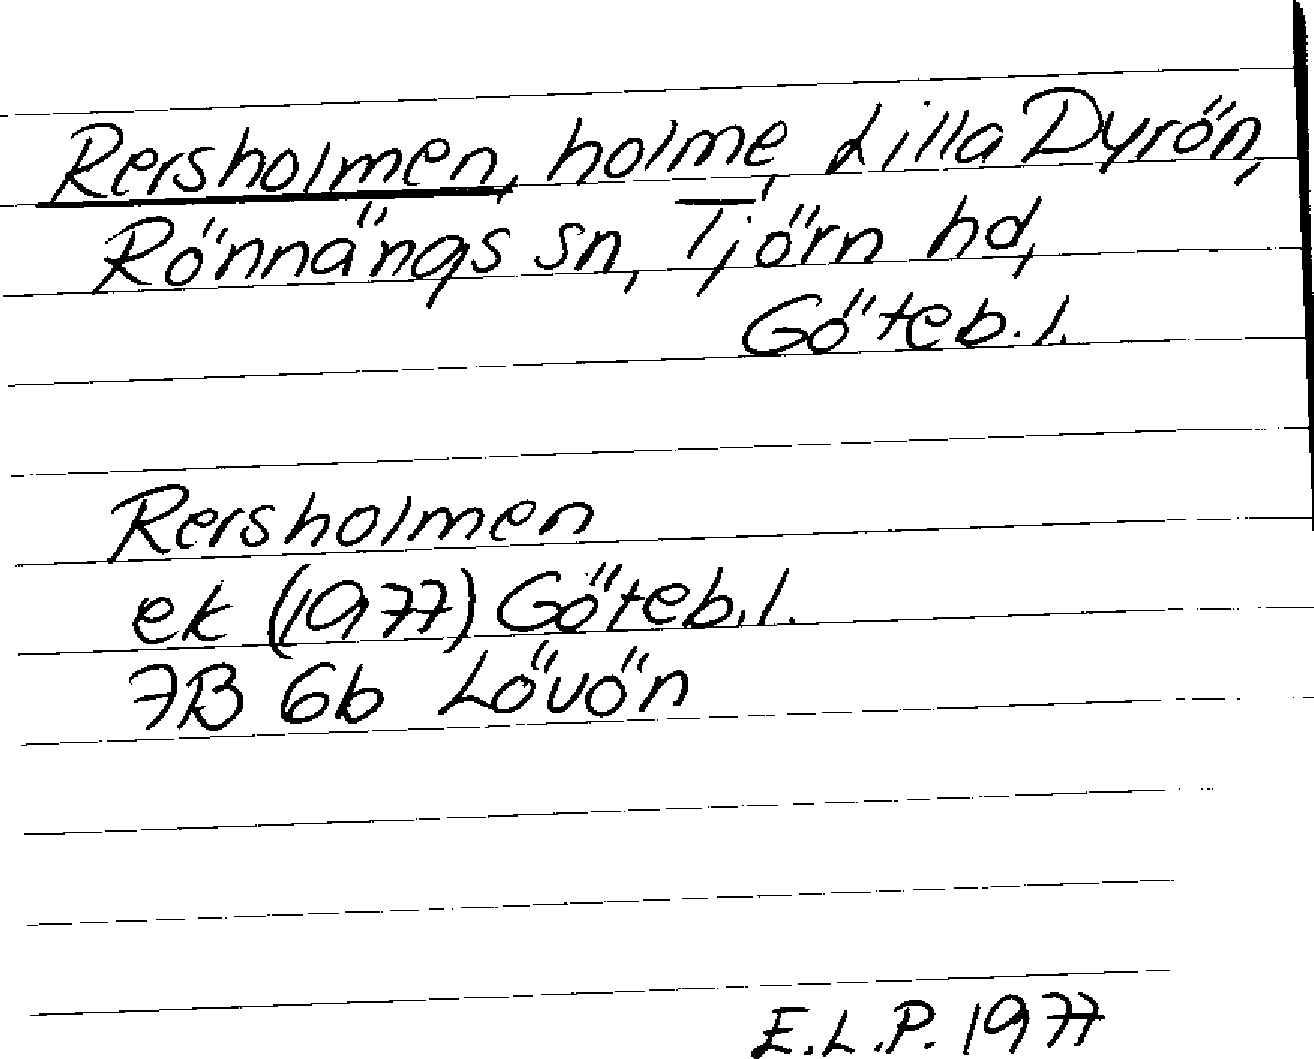 Rersholmen, holme, Lilla Dyrön,
Rönnängs sn, Tjörn hd,
Göteb. l.
Rersholmen
ek (1977) Göteb. l.
7B 6b Lövön
E.L.P. 1977